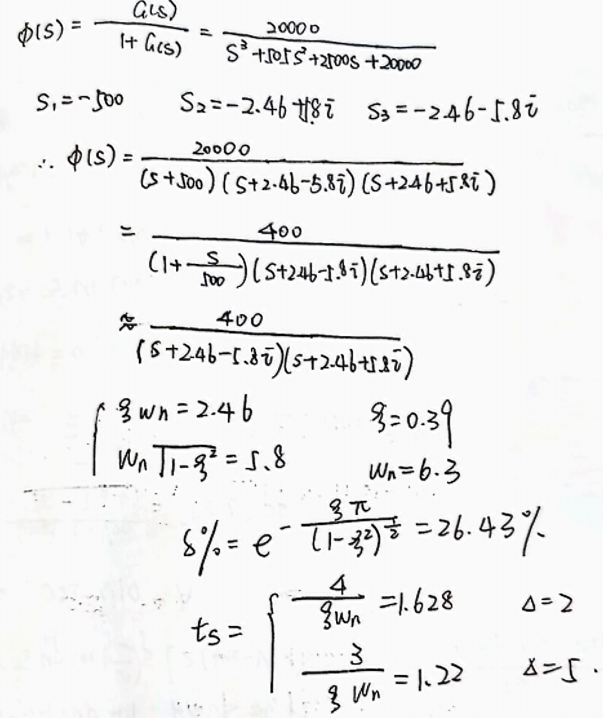 φ(s) = G(s) / (1+G(s)) = 20000 / (S³+505S²+2500S+20000)
S₁=-500 S₂=-2.46+5.8i S₃=-2.46-5.8i
∴ φ(s) = 20000 / ((S+500)(S+2.46-5.8i)(S+2.46+5.8i))
= 400 / ((1+S/500)(S+2.46-5.8i)(S+2.46+5.8i))
≈ 400 / ((S+2.46-5.8i)(S+2.46+5.8i))
{ ξWn=2.46 ξ=0.39
Wn√(1-ξ²)=5.8 Wn=6.3
δ%=e^(-ξπ/(1-ξ²)^(1/2))=26.43%
ts = { 4/(ξWn)=1.628 Δ=2
3/(ξWn)=1.22 Δ=5.